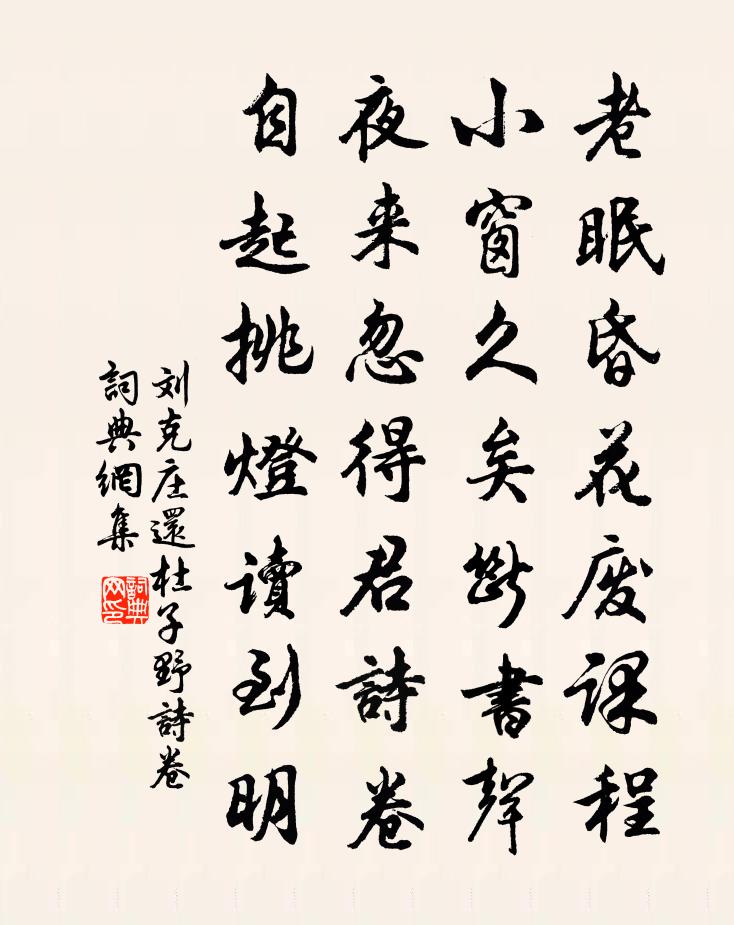 老眠昏花废课程
小窗久矣断書聲
夜来忽得君詩卷
自起挑燈讀到明
刘克庄還杜子野詩卷
詞典網集
詞典网印